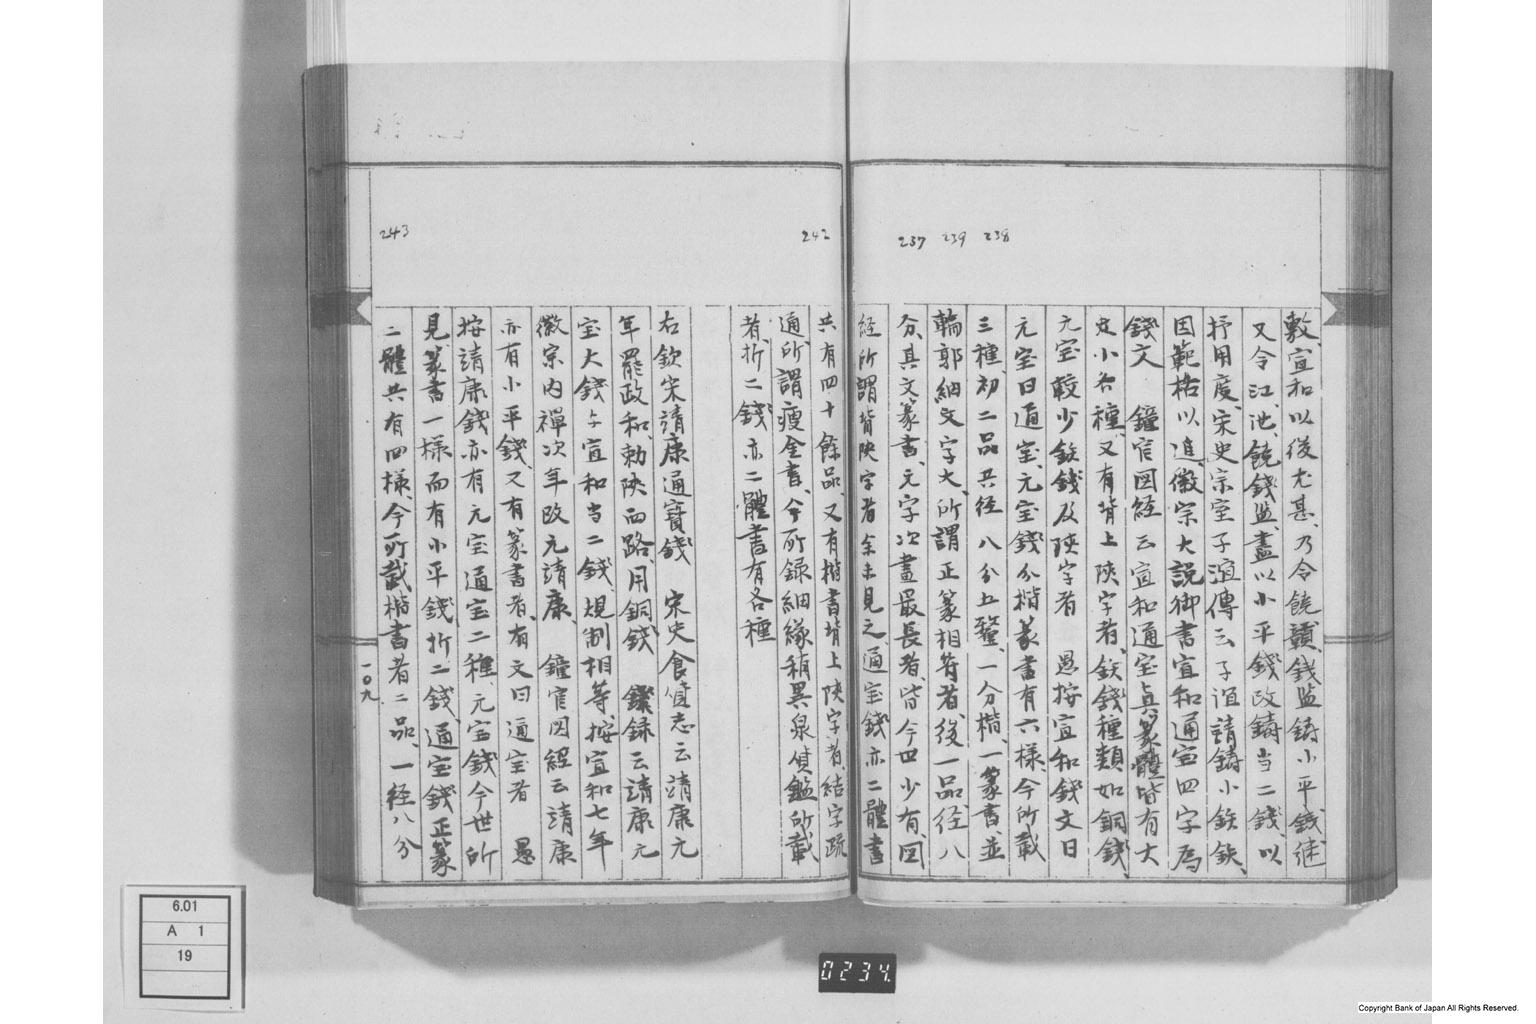 238
239
237
敷、宣和以後尤甚、乃令饒贛錢監鋳小平錢、継
又令江、池、饒錢監、盡以小平錢改鋳当二錢、以
抒用度、宋史宗室子𣳾傳云子𣳾請鋳小鉄鉄、
因範格以進、徽宗大説御書宣和通宝四字為
錢文　鐘官図経云宣和通宝真篆體皆有大
小各種、又有背上陝字者、鉄錢種類如銅錢、
元宝較少鉄錢及陝字者　愚按宣和錢文曰
元宝曰通宝、元宝錢分楷篆書有六様、今所載
三種、初二品共径八分五釐、一分楷、一篆書、並
輪郭細文字大、所謂正篆相等者、後一品径八
分、其文篆書、元字次畫最長者、皆今世少有、図
経所謂背陝字者余未見之、通宝錢亦二體書
242
共有四十餘品、又有楷書背上陝字者、結字疏
通、所謂瘦金書、今所録細縁稍異泉貨鑑所載
者、折二錢亦二體書有各種
右欽宋靖康通寳錢　宋史食貨志云靖康元
年罷政和、勅陝西路、用銅錢　錢録云靖康元
宝大錢与宣和当二錢規制相等、按宣和七年
徽宗内禪次年改元靖康、　鐘官図経云靖康
亦有小平錢、又有篆書者、有文曰通宝者　愚
按靖康錢亦有元宝通宝二種、元宝錢今世所
見篆書一様而有小平錢折二錢、通宝錢正篆
243
二體共有四様、今所載楷書者二品、一径八分
一〇九
6.01
A 1
19
0234.
Copyright Bank of Japan All Rights Reserved.